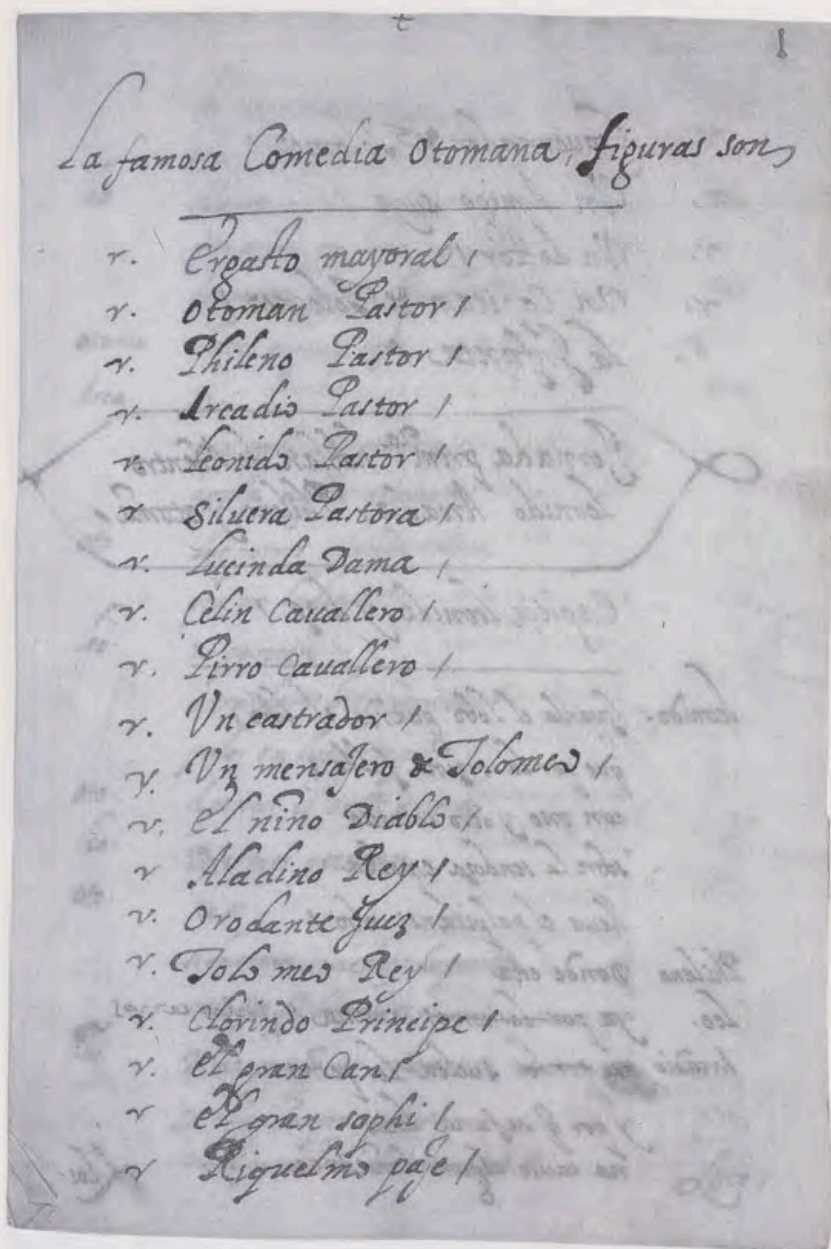 1
La famosa Comedia Otomana, figuras son
v. Ergasto mayoral /
v. Otoman Pastor /
v. Phileno Pastor /
v. Arcadio Pastor /
v. Leonido Pastor /
v. Siluera Pastora /
v. Lucinda Dama /
v. Celin Cauallero /
v. Pirro Cauallero /
v. Un castrador /
v. Un mensajero de Tolomeo /
v. el nino Diablo /
v Aladino Rey /
v. Orodante Juez /
v. Tolomeo Rey /
v. Clorindo Principe /
v. el gran Can /
v el gran sophi /
v Riquelmo paje /